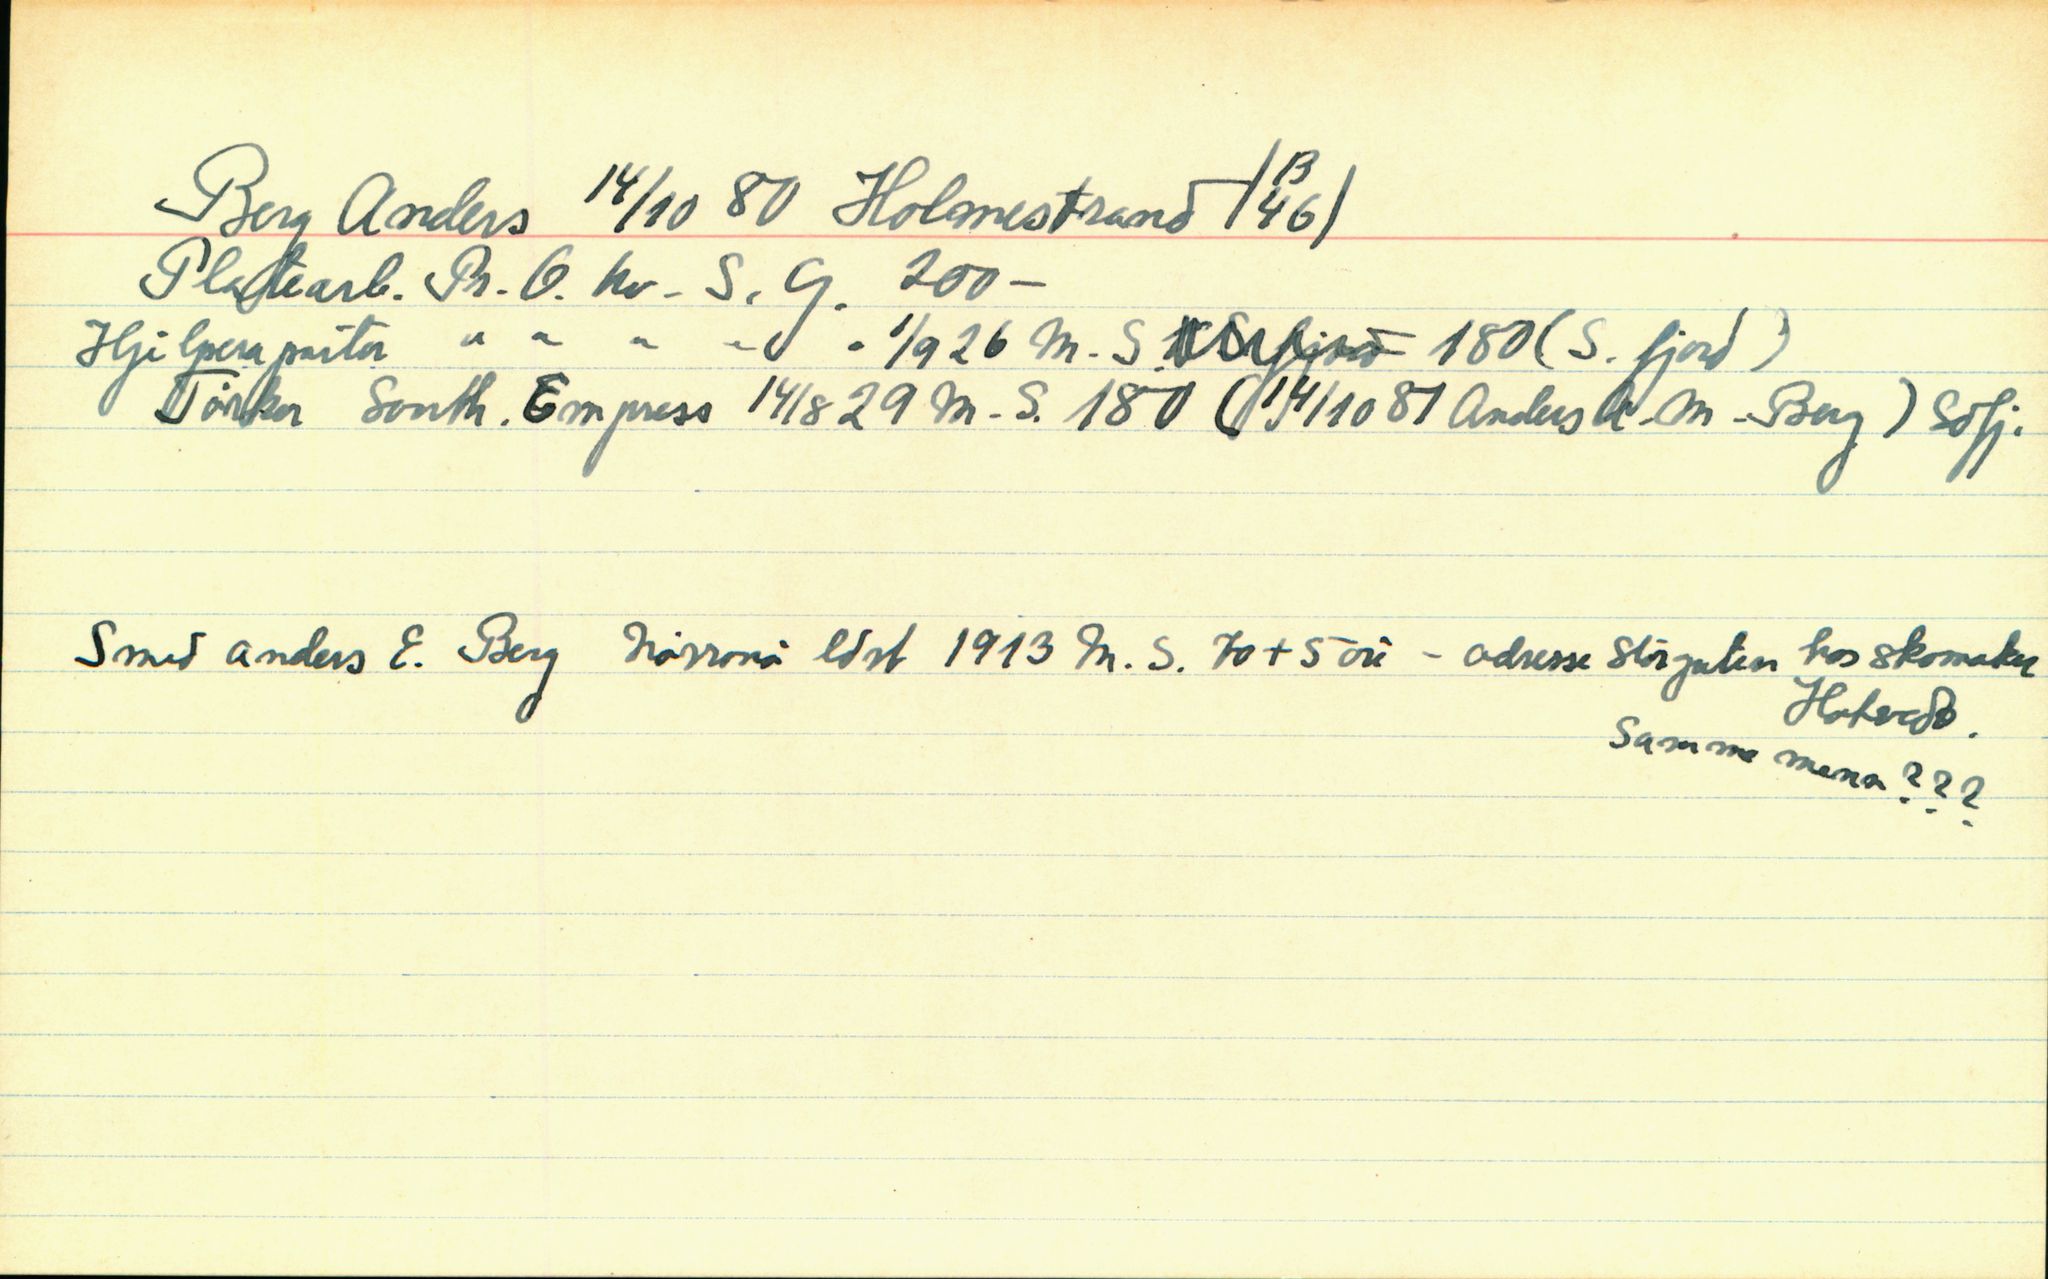 Berg Anders 14/10 80 Holmestrand (B 46)
Platearb. Pr. O. kv. S. G. 200 -
Hjelpereparitör " " " " " 1/9 26 M. S. 180 (S. fjord)
Törker South. Empress 14/8 29 M. S. 180 (14/10 81 Anders A. M. Berg) Söfj.
Smed Anders E. Berg 1913 M. S. 70 + 5 öre - adresse Störgaten hos skomaker
Samme mann ? ? ?